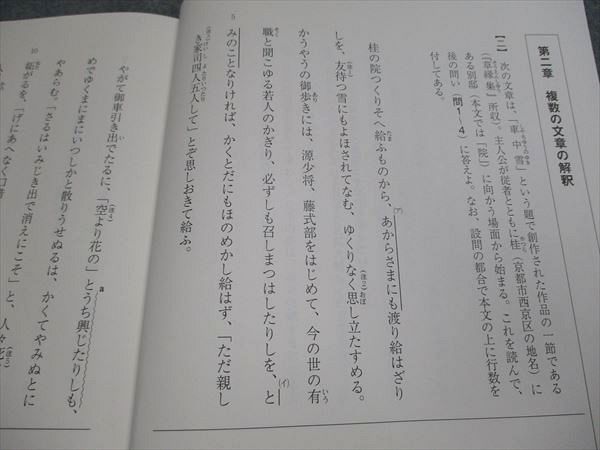 第二章　複数の文章の解釈
【二】　次の文章は、「車中雪」という題で創作された作品の一節である
(『草縁集』所収)。主人公が従者とともに桂(京都市西京区の地名)に
ある別邸(本文では「院」)に向かう場面から始まる。これを読んで、
後の問い(問1〜4)に答えよ。なお、設問の都合で本文の上に行数を
付してある。
桂の院つくりそへ給ふものから、(ア)あからさまにも渡り給はざり
しを、友待つ雪にもよほされてなむ、ゆくりなく思し立たすめる。
かうやうの御歩きには、源少将、藤式部をはじめて、今の世の有
職と聞こゆる若人のかぎり、必ずしも召しまつはしたりしを、(イ)と
5 みのことなりければ、かくとだにもほのめかし給はず、「ただ親し
き家司四人五人して」とぞ思しおきて給ふ。
やがて御車引き出でたるに、「空より花の」とaうち興じたりしも、
めでゆくまにまにいつしかと散りうせぬるは、かくてやみぬとに
やあらむ。「さるはいみじき出で消えにこそ」と、人々死
10 妬がるを、「げにあへなく口惜